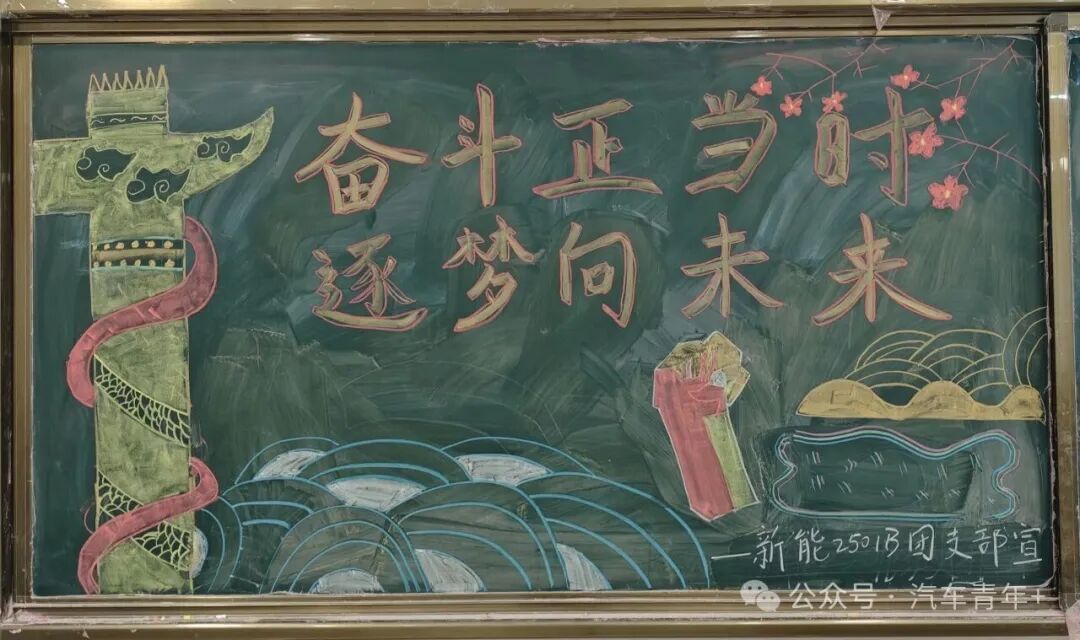 奋斗正当时
逐梦向未来
—新能2501B团支部宣
公众号·汽车青年+